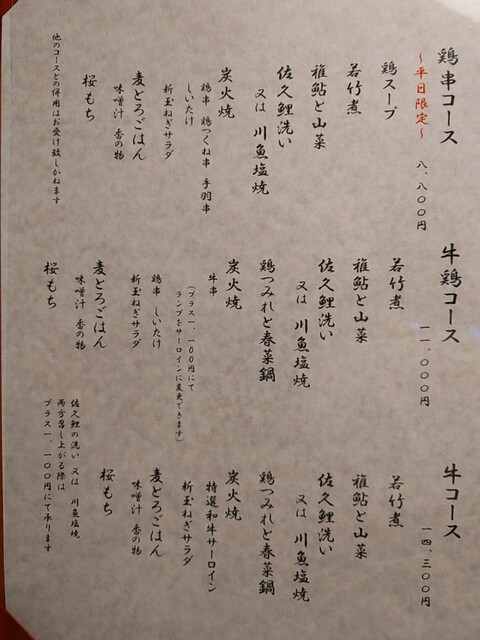 鶏串コース
～平日限定～
八、八〇〇円
鶏スープ
若竹煮
稚鮎と山菜
佐久鯉洗い
又は 川魚塩焼
炭火焼
鶏串 鶏つくね串 手羽串
しいたけ
新玉ねぎサラダ
麦とろごはん
味噌汁 香の物
桜もち
他のコースとの併用はお受け致しかねます
牛鶏コース
一一、〇〇〇円
若竹煮
稚鮎と山菜
佐久鯉洗い
又は 川魚塩焼
鶏つみれと春菜鍋
炭火焼
牛串
(プラス一、一〇〇円にて
ランプをサーロインに変更できます)
鶏串 しいたけ
新玉ねぎサラダ
麦とろごはん
味噌汁 香の物
桜もち
牛コース
一四、三〇〇円
若竹煮
稚鮎と山菜
佐久鯉洗い
又は 川魚塩焼
鶏つみれと春菜鍋
炭火焼
特選和牛サーロイン
新玉ねぎサラダ
麦とろごはん
味噌汁 香の物
桜もち
佐久鯉の洗い 又は 川魚塩焼
両方召し上がる際は
プラス一、一〇〇円にて承ります